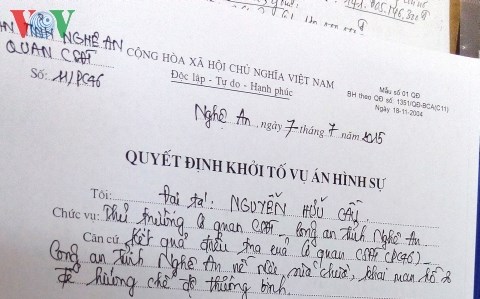 VOV
1đ1. 805.146.300đ
AN TỈNH NGHỆ AN
QUAN CSĐT
CỘNG HÒA XÃ HỘI CHỦ NGHĨA VIỆT NAM
Số: 11/PC46
Độc lập - Tự do - Hạnh phúc
Mẫu số 01 QĐ
BH theo QĐ số: 1351/QĐ-BCA(C11)
Ngày 18-11-2004
Nghệ An, ngày 7 tháng 7 năm 2015
QUYẾT ĐỊNH KHỞI TỐ VỤ ÁN HÌNH SỰ
Tôi: Đại tá: NGUYỄN HỮU CẦU
Chức vụ: Thủ trưởng Cơ quan CSĐT - Công an tỉnh Nghệ An
Căn cứ kết quả điều tra của Cơ quan CSĐT (PC46) -
Công an tỉnh Nghệ An về sửa chữa, khai man hồ sơ
để hưởng chế độ thương binh.